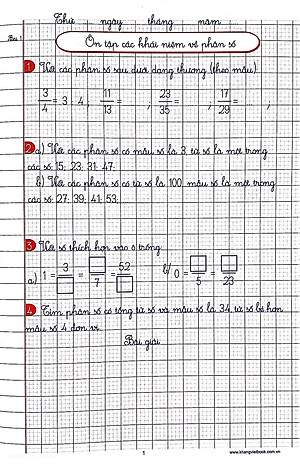 Thứ ngày tháng năm
Bài 1
Ôn tập các khái niệm về phân số
1 Viết các phân số sau dưới dạng thương (theo mẫu)
3/4 = 3 : 4 ; 11/13 = , 23/35 = , 17/29 = ,
2 a) Viết các phân số có mẫu số là 3, tử số là một trong
các số: 15; 23; 31; 47;
b) Viết các phân số có tử số là 100, mẫu số là một trong
các số: 27; 39; 41; 53;
3 Viết số thích hợp vào ô trống
a) 1 = 3/□ = □/7 = 52/□ b) 0 = □/5 = □/23
4 Tìm phân số có tổng tử số và mẫu số là 34, tử số bé hơn
mẫu số 4 đơn vị.
Bài giải
1 www.khangvietbook.com.vn